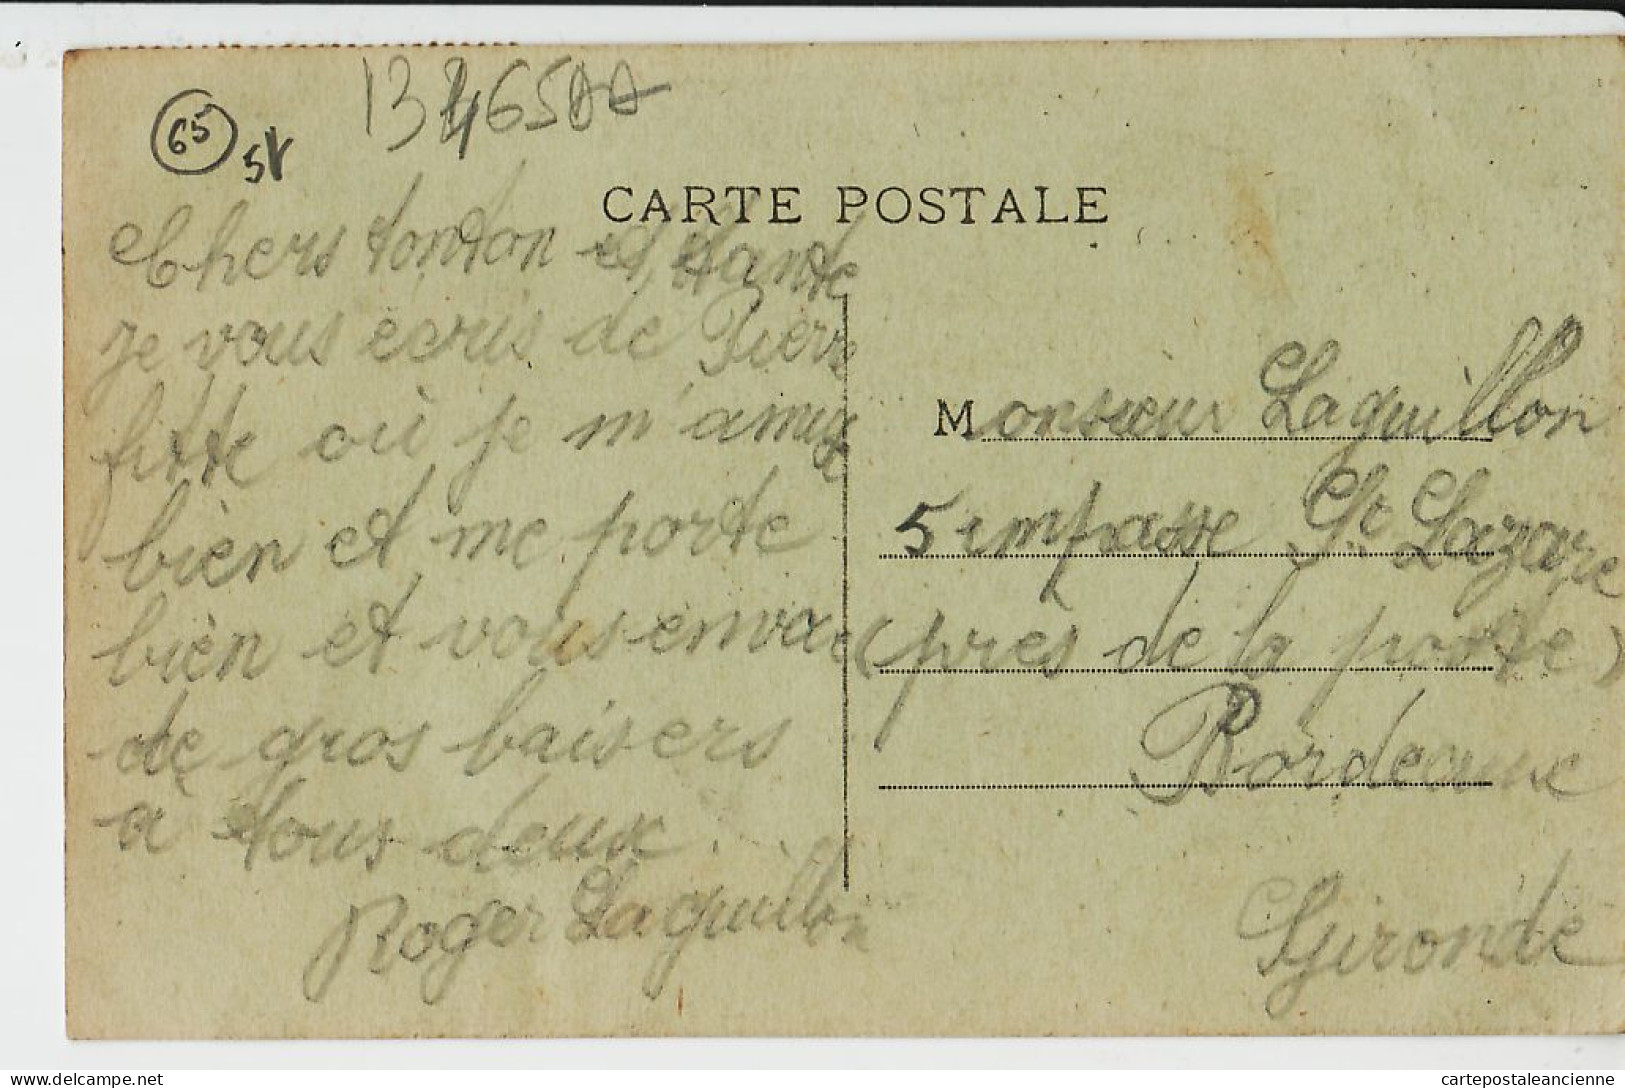 65
134650A
CARTE POSTALE
Chers tonton et tante
je vous écris de Pierre
fitte où je m'amuse
bien et me porte
bien et vous envoie
de gros baisers
à tous deux
Roger Laguillon
Monsieur Laguillon
5 impasse St Lazare
(près de la poste)
Bordeaux
Gironde
delcampe.net
cartepostaleancienne